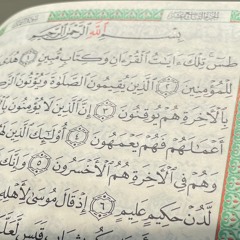 بِسْمِ ٱللَّهِ ٱلرَّحْمَٰنِ ٱلرَّحِيمِ
طسٓ تِلْكَ ءَايَٰتُ ٱلْقُرْءَانِ وَكِتَابٍ مُّبِينٍ ١ هُدًى
لِلْمُؤْمِنِينَ ٢ ٱلَّذِينَ يُقِيمُونَ ٱلصَّلَوٰةَ وَيُؤْتُونَ
بِٱلْءَاخِرَةِ هُمْ يُوقِنُونَ ٣ إِنَّ ٱلَّذِينَ لَا يُؤْمِنُونَ
أَعْمَٰلَهُمْ فَهُمْ يَعْمَهُونَ ٤ أُو۟لَٰٓئِكَ
وَهُمْ فِى ٱلْءَاخِرَةِ هُمُ ٱلْأَخْسَرُونَ ٥ وَإِنَّكَ
لَّدُنْ حَكِيمٍ عَلِيمٍ ٦ إِذْ قَالَ مُوسَىٰ لِأَهْلِهِ